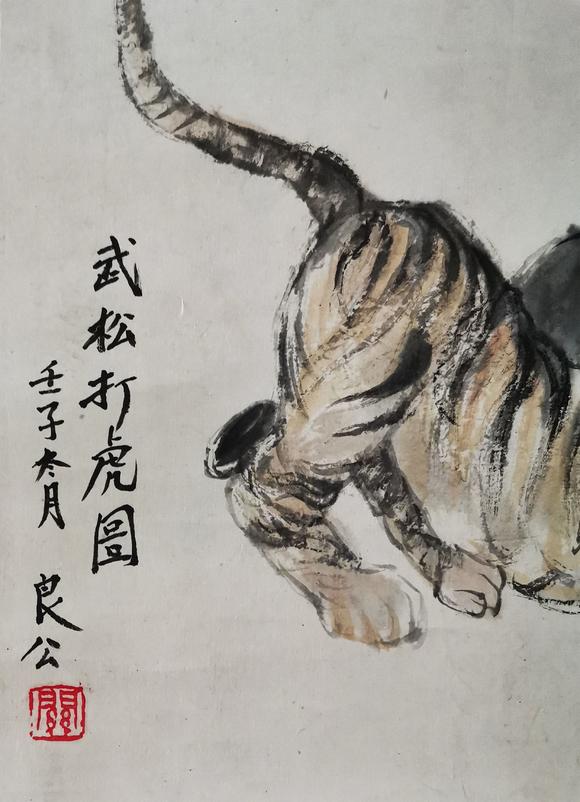 武松打虎圖
壬子冬月 良公
關